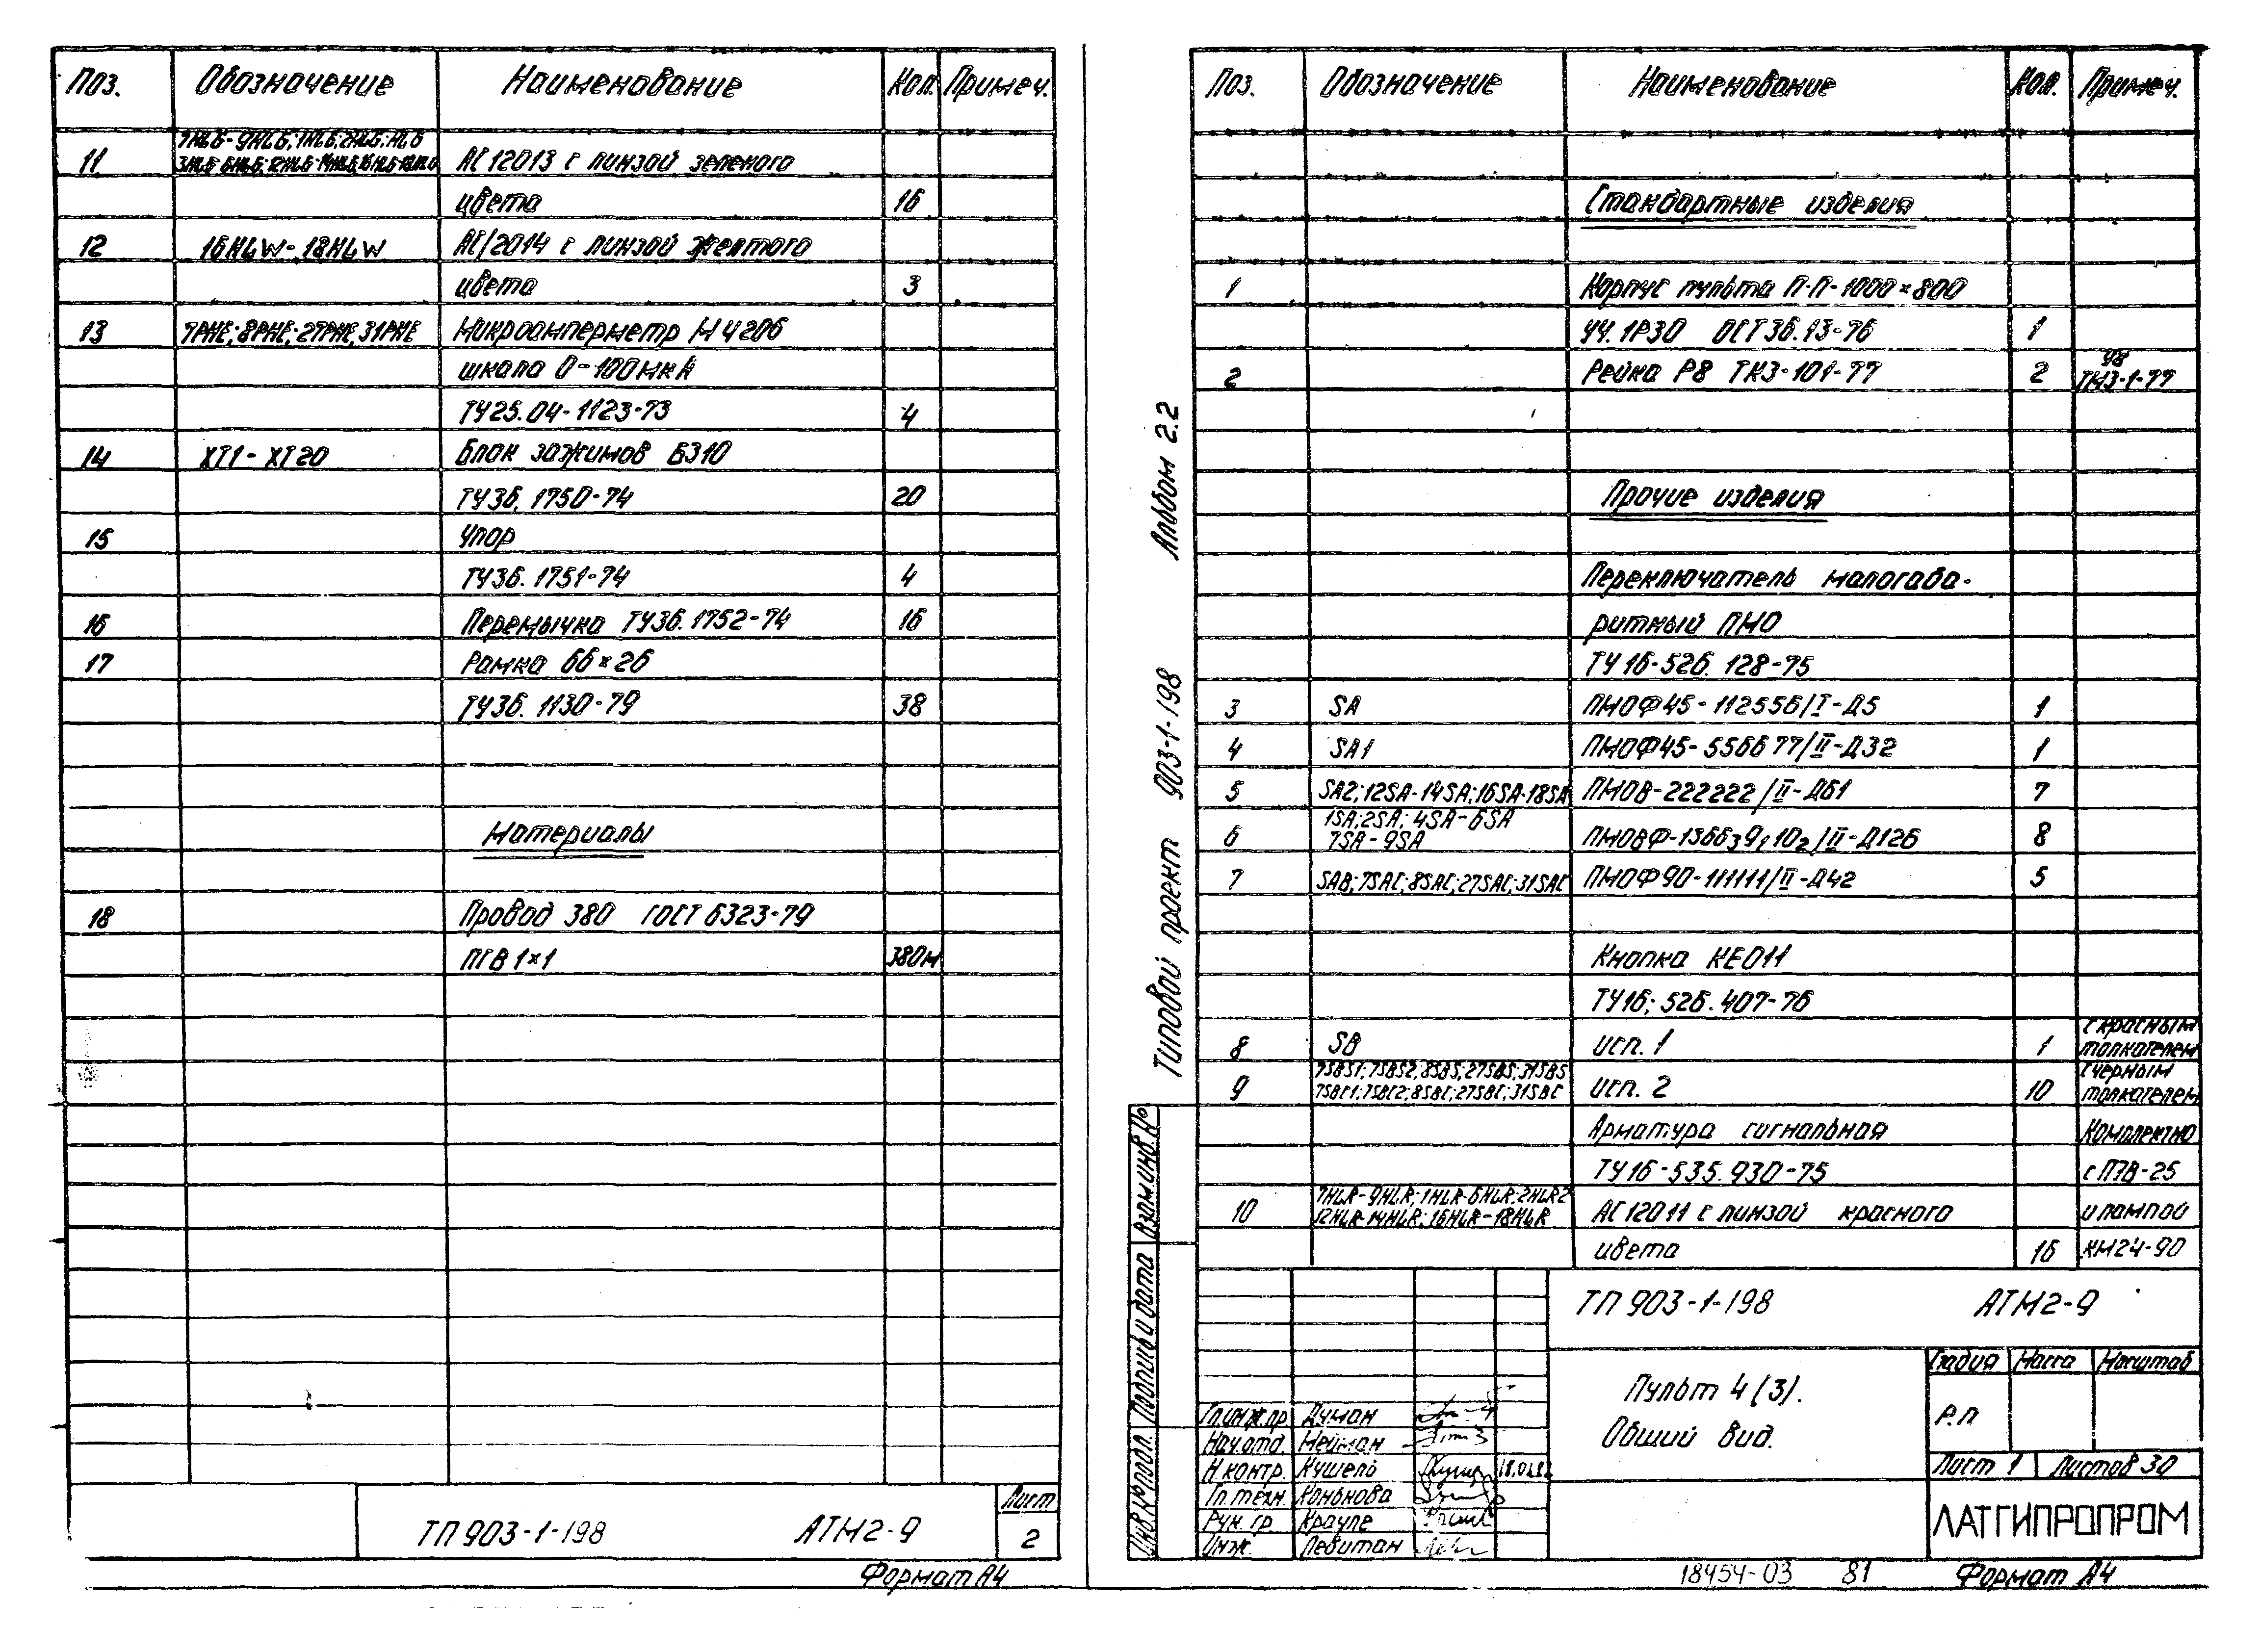 Поз. Обозначение Наименование Кол. Примеч.
7HLG-9HLG; 1HLG; 2HLG; HLG
11 АС12013 с линзой зеленого
цвета 16
12 16HLW-18HLW АС12014 с линзой желтого
цвета 3
13 7PHE; 8PHE; 27PHE, 31PHE Микроамперметр М4206
шкала 0-100мкА
ТУ25.04-1123-73 4
14 XT1-XT20 Блок зажимов Б310
ТУ36.1750-74 20
15 Упор
ТУ36.1751-74 4
16 Перемычка ТУ36.1752-74 16
17 Рамка 66×26
ТУ36.1130-79 38
Материалы
18 Провод 380 ГОСТ 6323-79
ПГВ 1×1 380м
ТП 903-1-198 АТМ2-9
Лист
2
Формат А4
Альбом 2.2
Типовой проект 903-1-198
Взам.инв.№
Подпись и дата
Инв.№ подл.
Поз. Обозначение Наименование Кол. Примеч.
Стандартные изделия
1 Корпус пульта П-П-1000×800
УЧ.1Р30 ОСТ36.13-76 1
2 Рейка Р8 ТК3-101-77 2 ТМ3-1-77
Прочие изделия
Переключатель малогаба-
ритный ПМО
ТУ16-526.128-75
3 SA ПМОФ45-112556/I-Д5 1
4 SA1 ПМОФ45-556677/II-Д32 1
5 SA2; 12SA-14SA; 16SA-18SA ПМОВ-222222/II-Д61 7
1SA; 2SA; 4SA-6SA
6 7SA-9SA ПМОВФ-136639₁10₂/II-Д126 8
7 SAB; 7SAC; 8SAC; 27SAC; 31SAC ПМОФ90-111111/II-Д42 5
Кнопка КЕ011
ТУ16-526.407-76
с красным
8 SB исп. 1 1 толкателем
7SBS1; 7SBS2; 8SBS; 27SBS; 31SBS с черным
9 7SBC1; 7SBC2; 8SBC; 27SBC; 31SBC исп. 2 10 толкателем
Арматура сигнальная Комплектно
ТУ16-535.930-75 с ПЭВ-25
7HLR-9HLR; 1HLR-6HLR; 2HLR2
10 12HLR-14HLR; 16HLR-18HLR АС12011 с линзой красного и лампой
цвета 16 КМ24-90
ТП 903-1-198 АТМ2-9
Пульт 4(3).
Общий вид.
Стадия Масса Масштаб
Р.П
Лист 1 Листов 30
ЛАТГИПРОПРОМ
Гл.инж.пр Думан
Нач.отд. Нейман
Н.контр. Кушель
Гл.техн. Конькова
Рук.гр Крауле
Инж. Левитан
18454-03 81 Формат А4